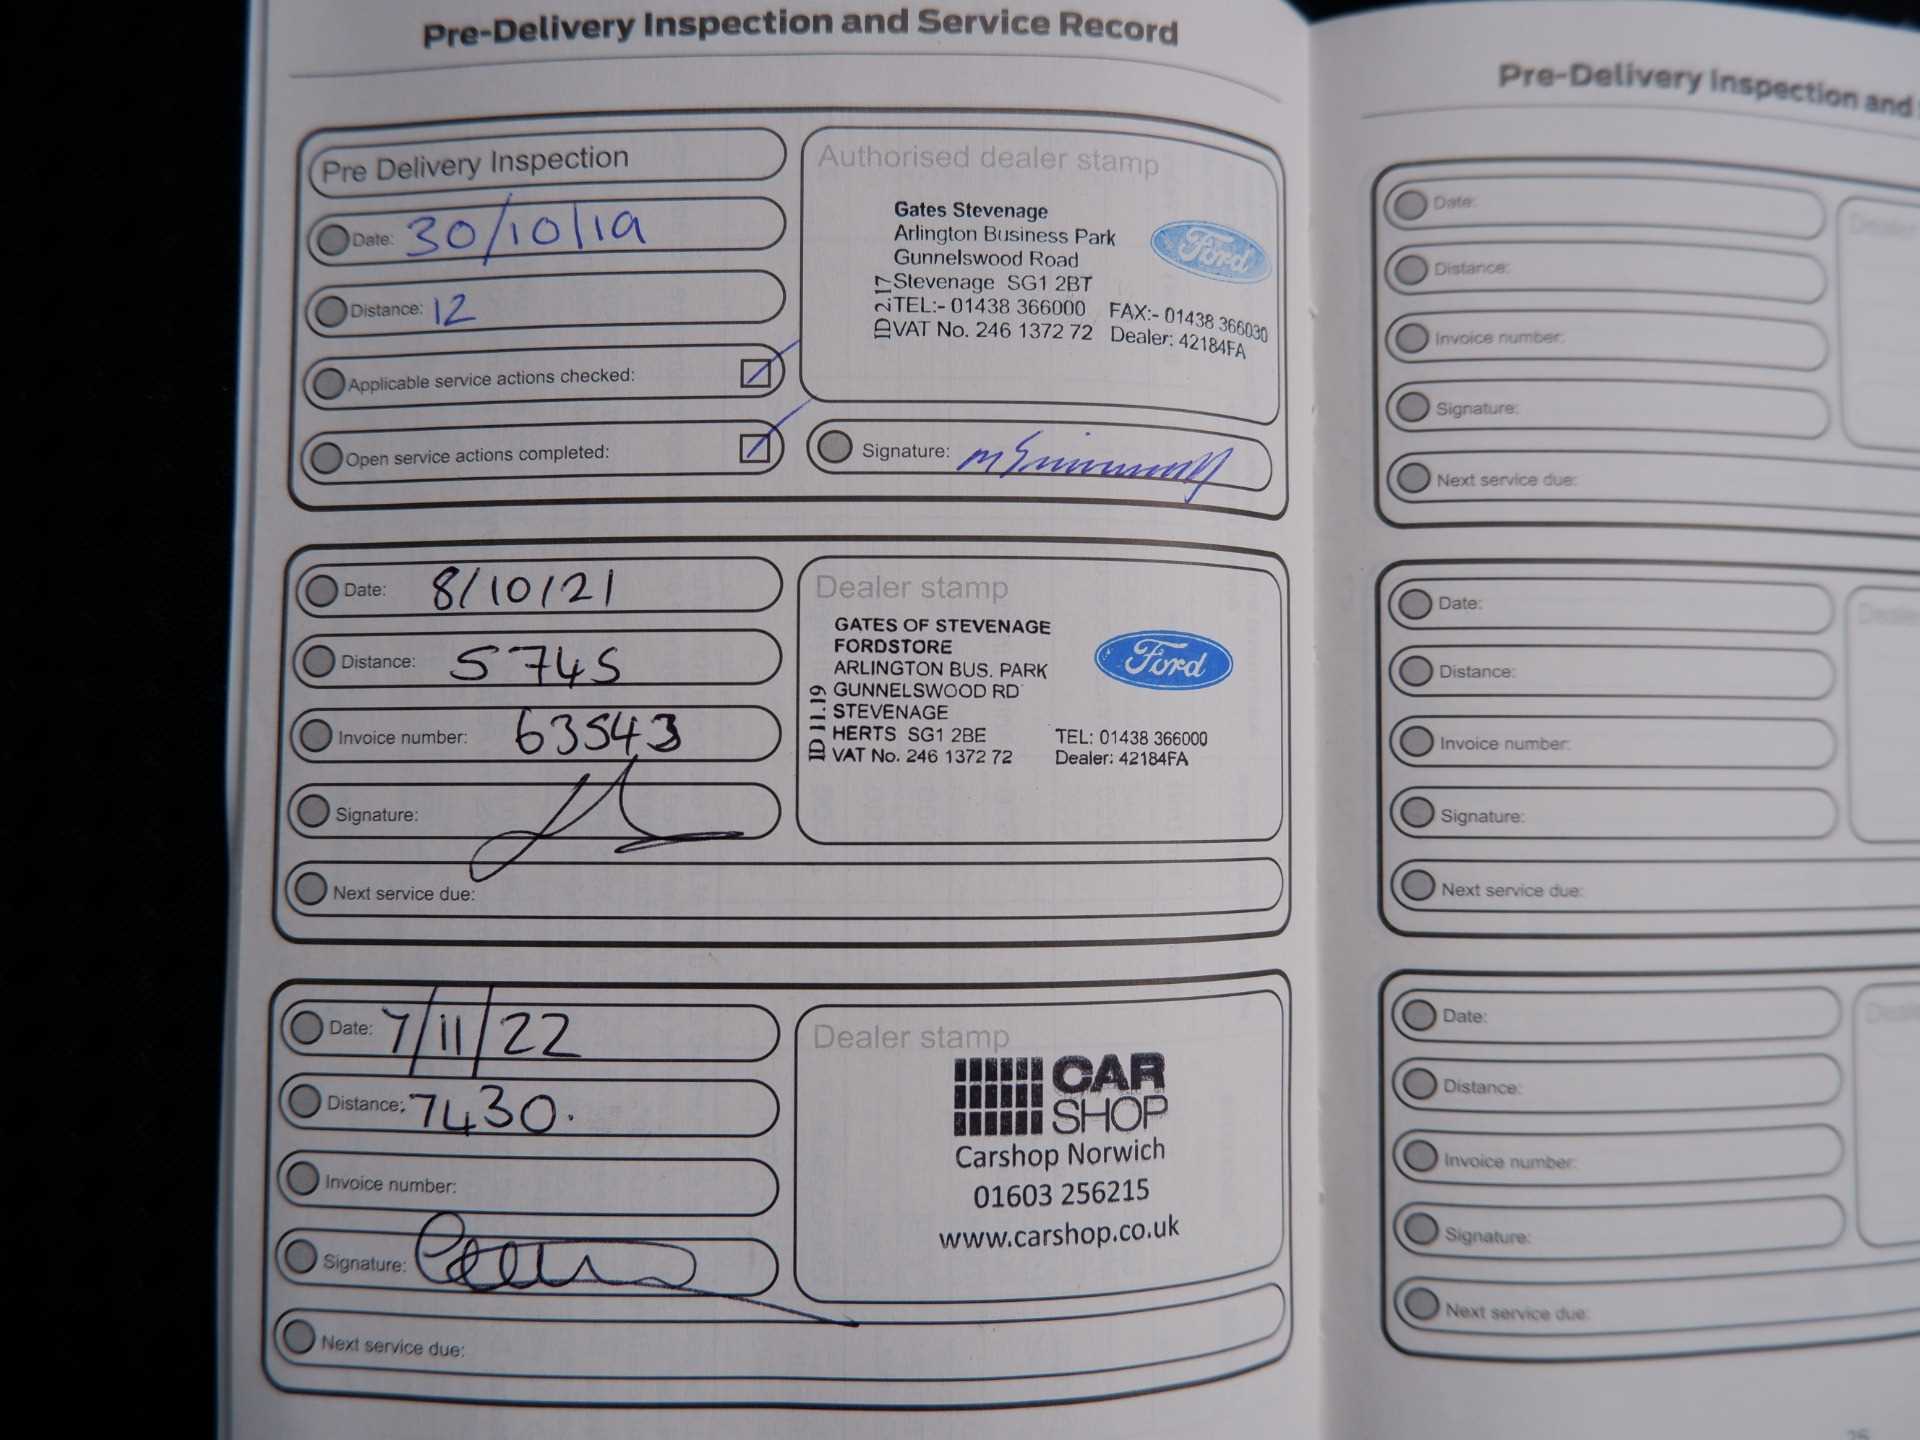 Pre-Delivery Inspection and Service Record
Pre Delivery Inspection
Date: 30/10/19
Distance: 12
Applicable service actions checked:
Open service actions completed:
Authorised dealer stamp
Gates Stevenage
Arlington Business Park
Gunnelswood Road
Stevenage SG1 2BT
TEL:- 01438 366000 FAX:- 01438 366030
VAT No. 246 1372 72 Dealer: 42184FA
ID 2.17
Ford
Signature:
Date: 8/10/21
Distance: 5745
Invoice number: 63543
Signature:
Next service due:
Dealer stamp
GATES OF STEVENAGE
FORDSTORE
ARLINGTON BUS. PARK
GUNNELSWOOD RD
STEVENAGE
HERTS SG1 2BE TEL: 01438 366000
VAT No. 246 1372 72 Dealer: 42184FA
ID 11.19
Ford
Date: 7/11/22
Distance: 7430.
Invoice number:
Signature:
Next service due:
Dealer stamp
CAR
SHOP
Carshop Norwich
01603 256215
www.carshop.co.uk
Pre-Delivery Inspection and
Date:
Distance:
Invoice number:
Signature:
Next service due:
Date:
Distance:
Invoice number:
Signature:
Next service due:
Date:
Distance:
Invoice number:
Signature:
Next service due: